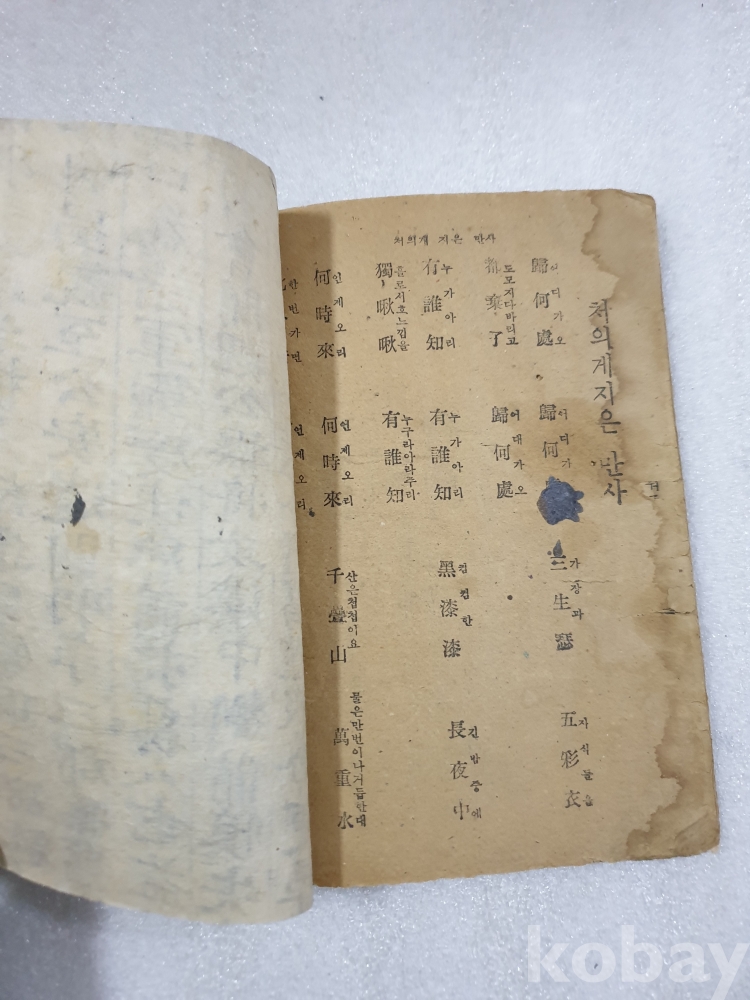 처의게 지은 만사
처의게지은 만사
歸何處 歸何 三生瑟 五彩衣
어디가오 어디가 가장과 자식물을
棄了 歸何處
도모지다바리고 어대가오
有誰知 有誰知 黑漆漆 長夜中
누가아리 누가아리 컴컴한 긴밤중에
獨啾啾 有誰知
홀로서흐느낌을 누구라아라주리
何時來 何時來 千疊山 萬重水
언제오리 언제오리 산은첩첩이요 물은만번이나거듭한대
한번가면 언제오리
kobay